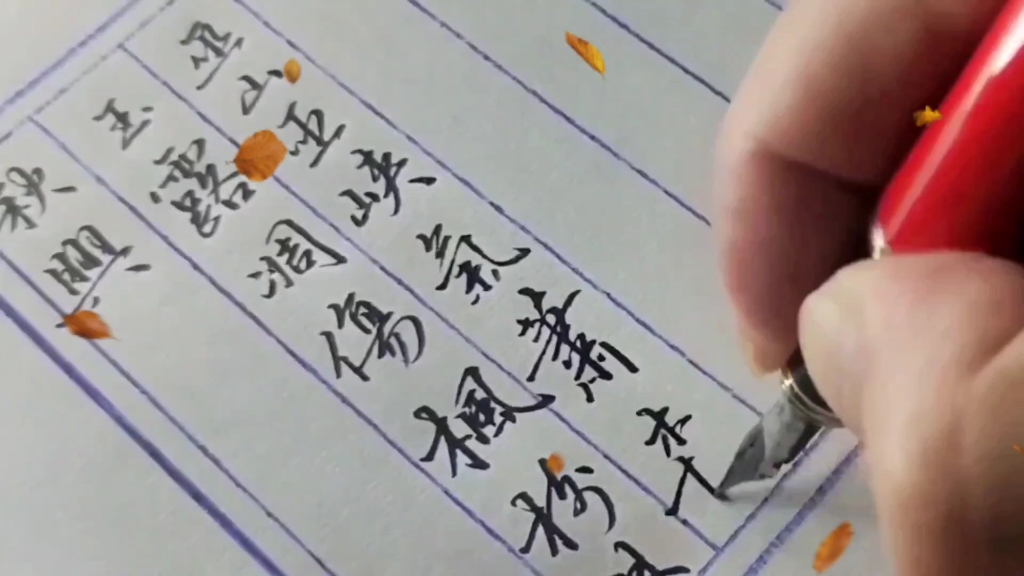 秋興
玉露凋傷楓樹
巫山巫峽氣蕭